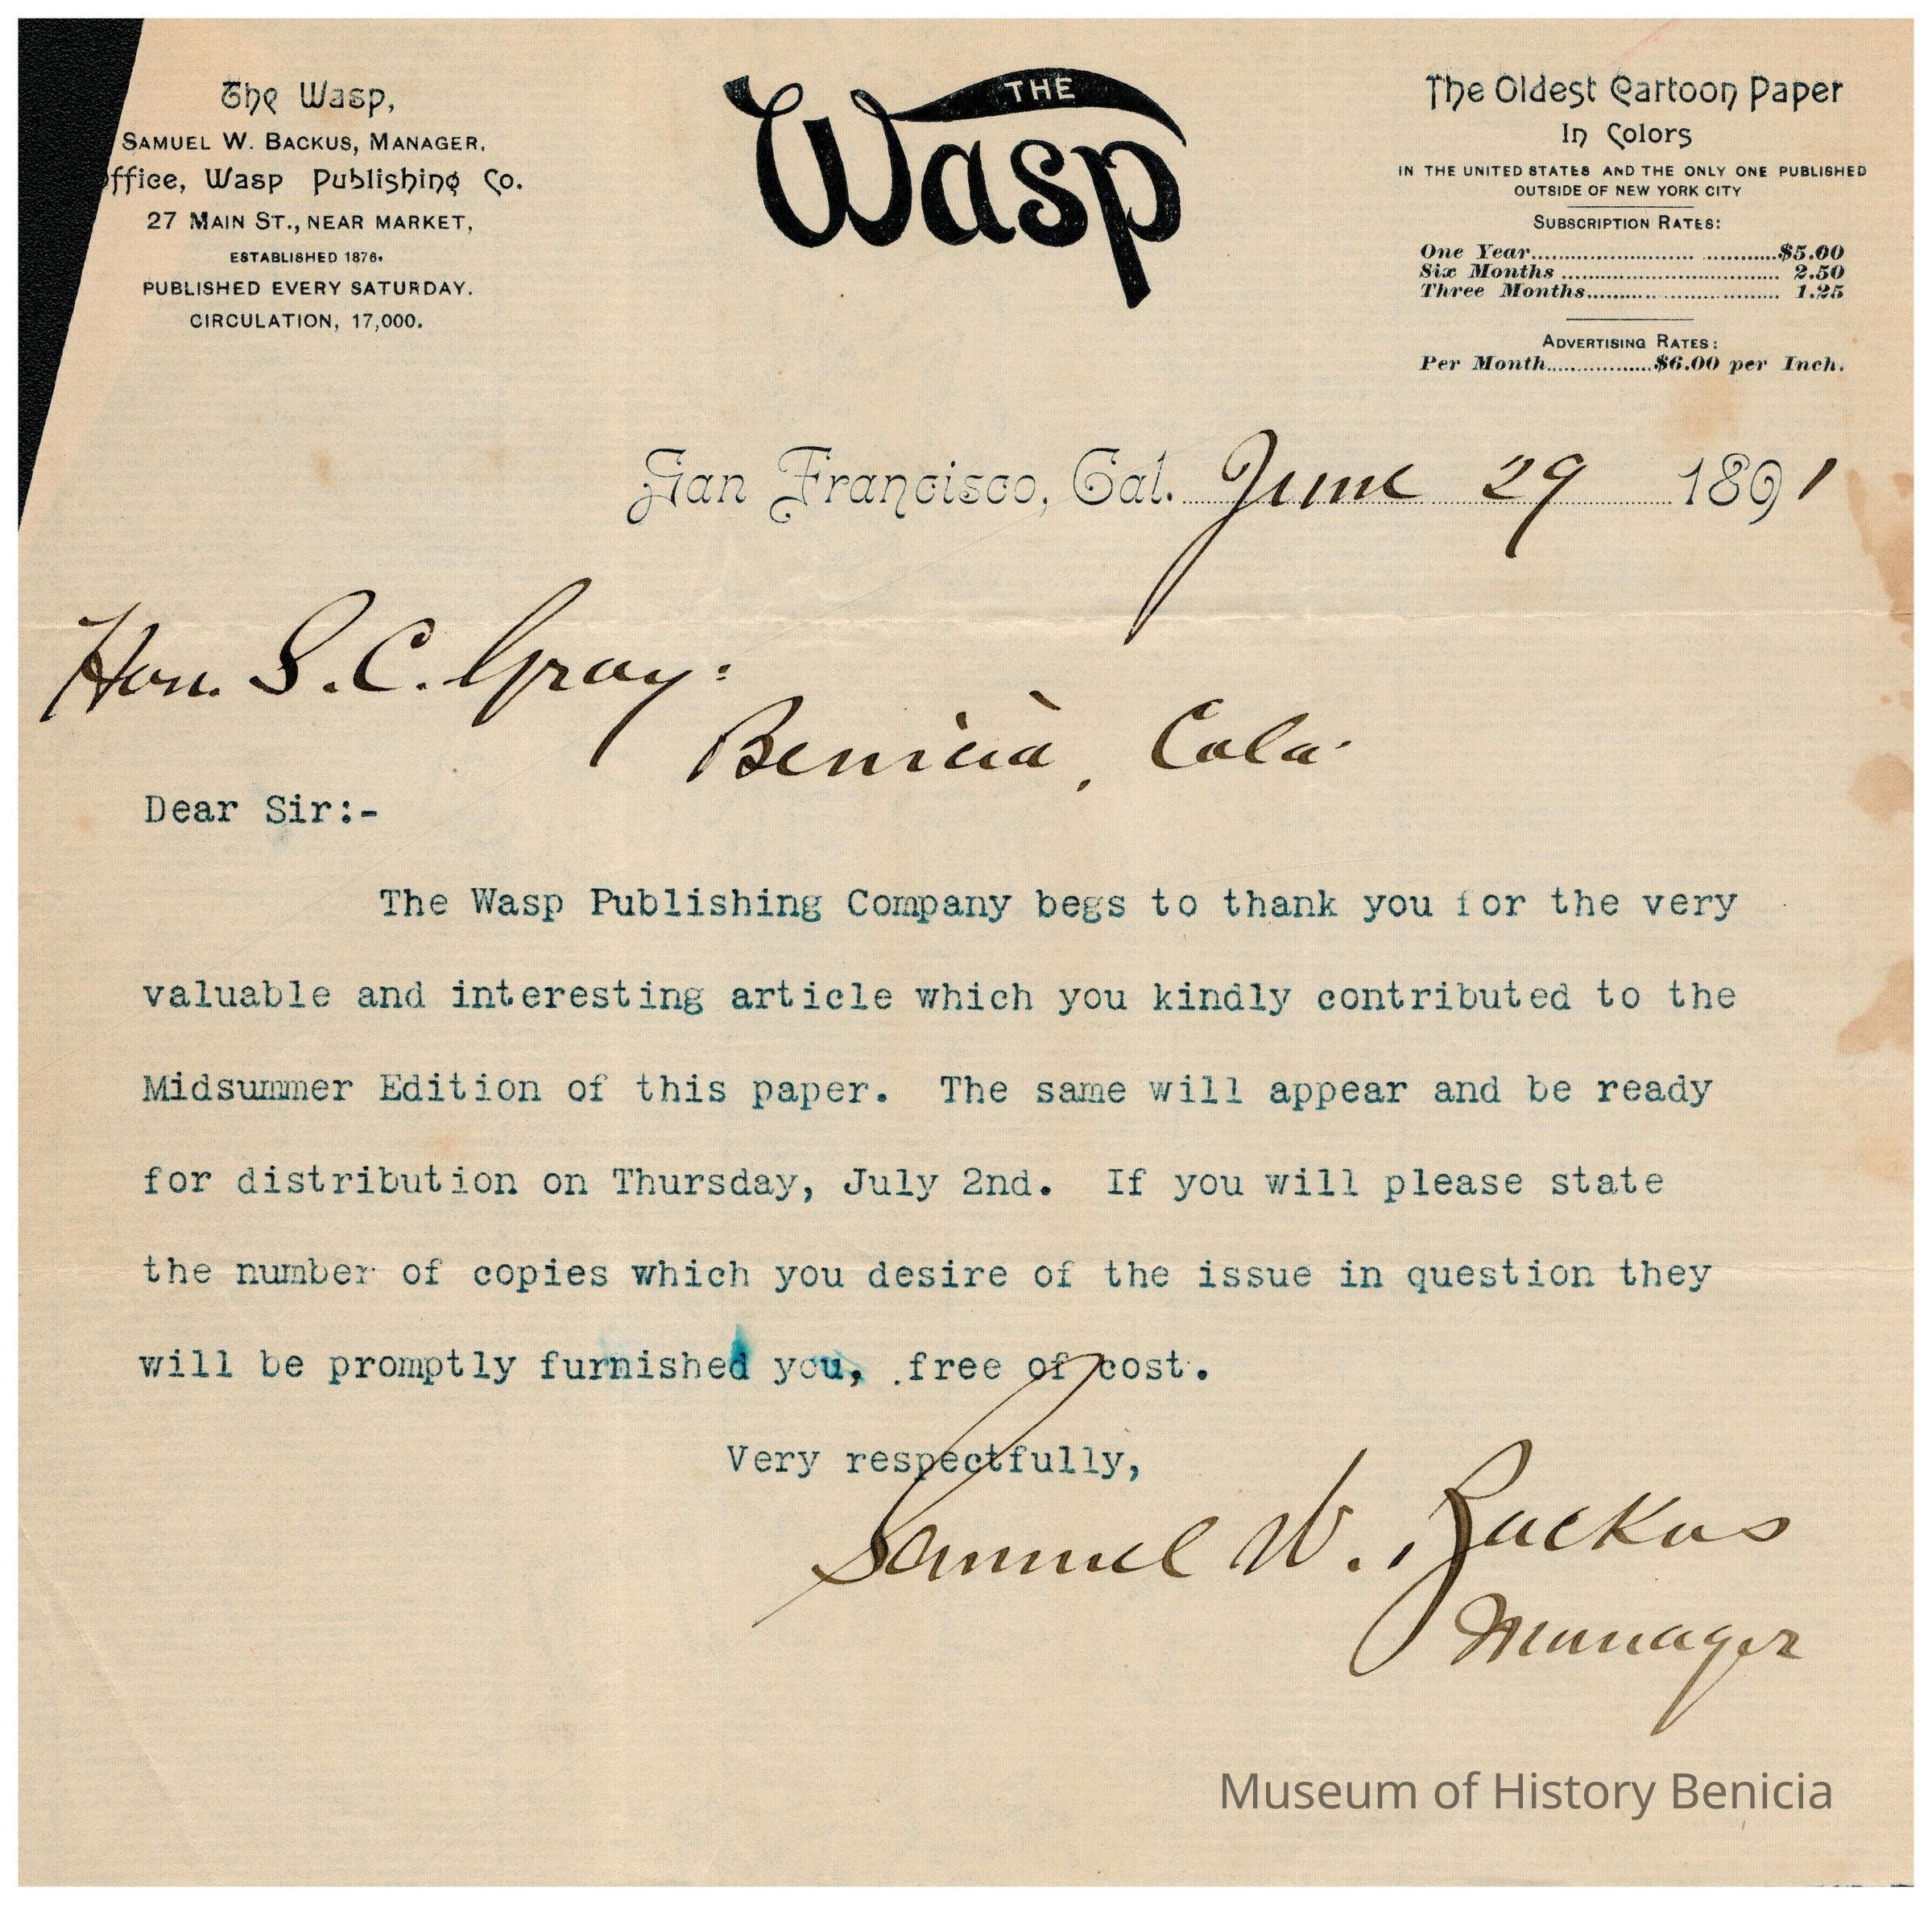 The Wasp,
SAMUEL W. BACKUS, MANAGER.
ffice, Wasp Publishing Co.
27 MAIN ST., NEAR MARKET,
ESTABLISHED 1876.
PUBLISHED EVERY SATURDAY.
CIRCULATION, 17,000.
THE
Wasp
The Oldest Cartoon Paper
In Colors
IN THE UNITED STATES AND THE ONLY ONE PUBLISHED
OUTSIDE OF NEW YORK CITY
SUBSCRIPTION RATES:
One Year.................................$5.00
Six Months................................. 2.50
Three Months............................. 1.25
ADVERTISING RATES:
Per Month.................$6.00 per Inch.
San Francisco, Cal. June 29 1891
Hon. S. C. Gray:
Benicia, Cala.
Dear Sir:-
The Wasp Publishing Company begs to thank you for the very
valuable and interesting article which you kindly contributed to the
Midsummer Edition of this paper. The same will appear and be ready
for distribution on Thursday, July 2nd. If you will please state
the number of copies which you desire of the issue in question they
will be promptly furnished you, .free of cost.
Very respectfully,
Samuel W. Backus
Manager
Museum of History Benicia